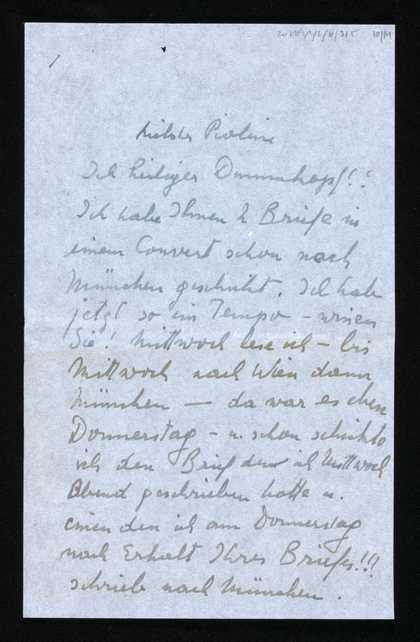 Liebster Piatine
Ich heiliger Dummkopf!!
Ich habe Ihnen 2 Briefe in
einem Couvert schon nach
München geschickt. Ich habe
jetzt so ein Tempo - wissen
Sie! Mittwoch lese ich - bis
Mittwoch nach Wien dann
München — da war es eben
Donnerstag - u. schon schickte
ich den Brief den ich Mittwoch
Abend geschrieben hatte u.
einen den ich am Donnerstag
nach Erhalt Ihres Briefes!!!
schrieb nach München.